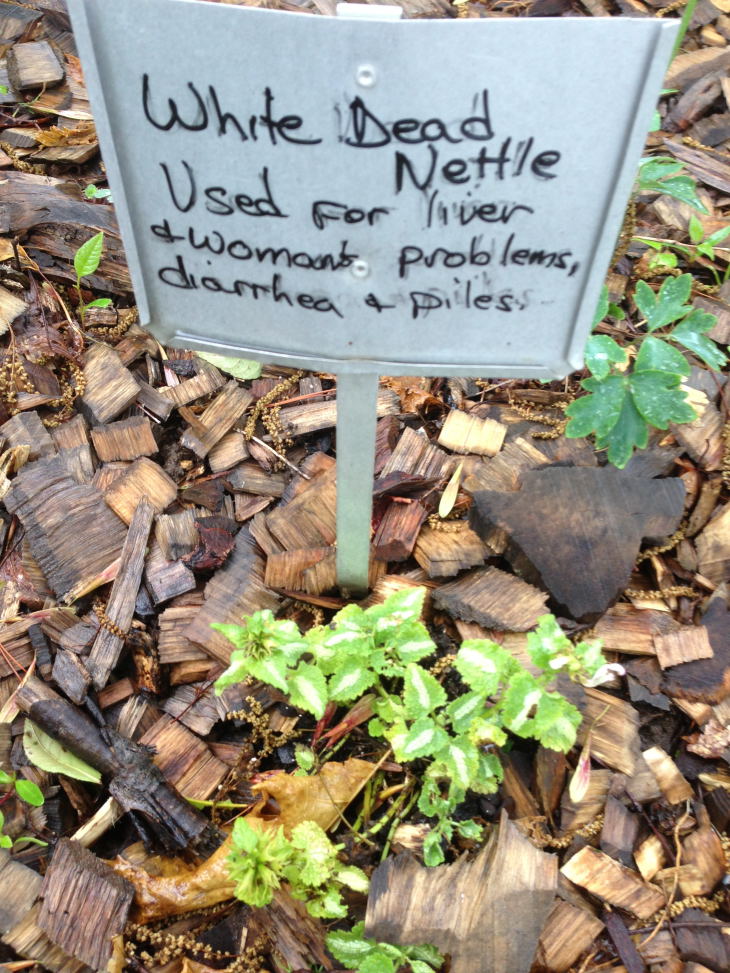 White Dead
Nettle
Used For liver
+ woman's problems,
diarrhea + piles.